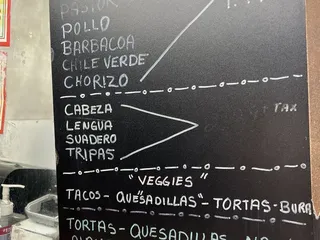 PASTOR
POLLO
BARBACOA
CHILE VERDE
CHORIZO
CABEZA
LENGUA
SUADERO
TRIPAS
+ TAX
"VEGGIES"
TACOS - QUESADILLAS - TORTAS - BURR
TORTAS - QUESADILLAS